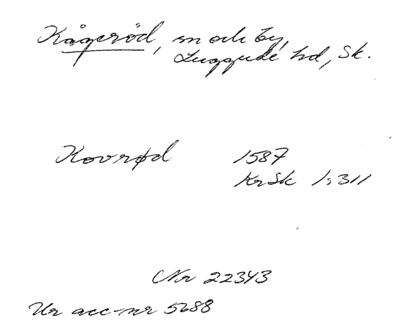 Kågeröd, sn och by,
Luggude hd, Sk.
Kovrød 1587
KrSk 1:311
Nr 22343
Ur acc-nr 5688